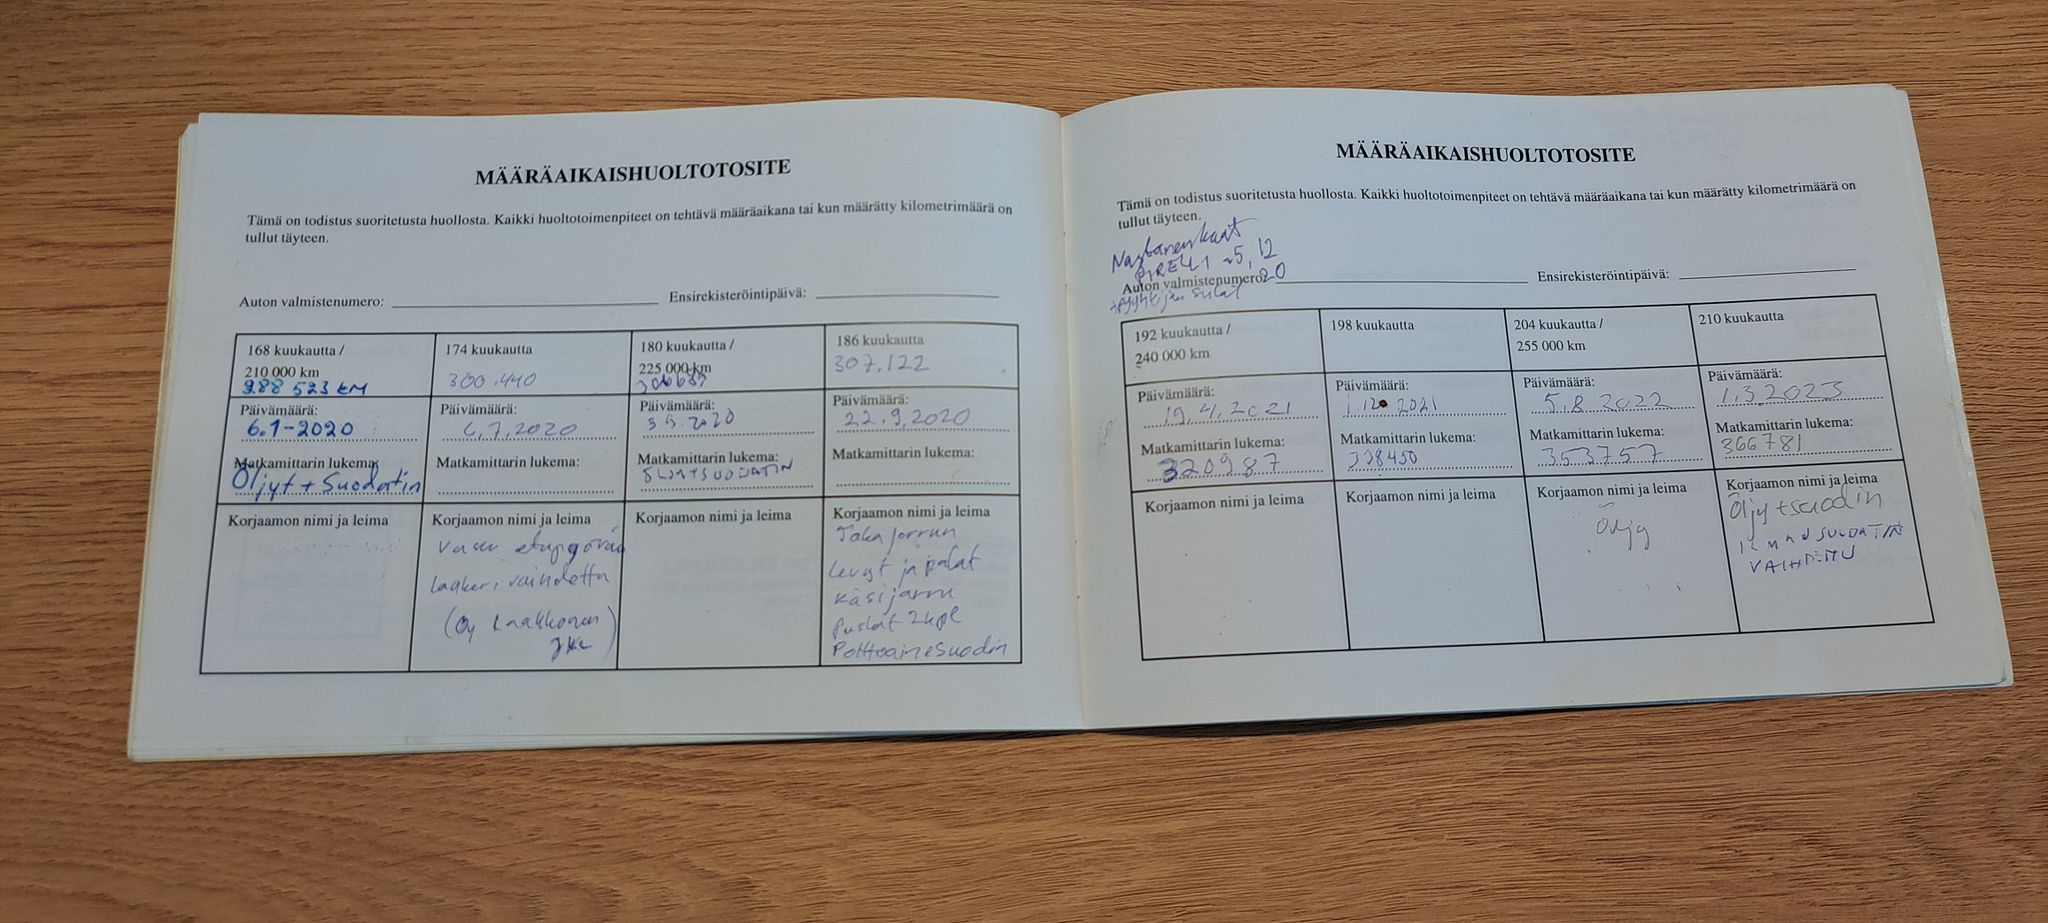 MÄÄRÄAIKAISHUOLTOTOSITE
Tämä on todistus suoritetusta huollosta. Kaikki huoltotoimenpiteet on tehtävä määräaikana tai kun määrätty kilometrimäärä on
tullut täyteen.
Auton valmistenumero: Ensirekisteröintipäivä:
168 kuukautta /
210 000 km
288 523 KM
Päivämäärä:
6.1-2020
Matkamittarin lukema:
Öljyt + Suodatin
Korjaamon nimi ja leima
174 kuukautta
300.440
Päivämäärä:
6.7.2020
Matkamittarin lukema:
Korjaamon nimi ja leima
Vasen etupyörän
laakeri vaihdettu
(Oy Laakkonen
180 kuukautta /
225 000 km
Päivämäärä:
Matkamittarin lukema:
Korjaamon nimi ja leima
186 kuukautta
307.122
Päivämäärä:
22.9.2020
Matkamittarin lukema:
Korjaamon nimi ja leima
Taka jarrun
Levyt ja palat
Käsijarru
Puslat 2kpl
Polttoainesuodin
MÄÄRÄAIKAISHUOLTOTOSITE
Tämä on todistus suoritetusta huollosta. Kaikki huoltotoimenpiteet on tehtävä määräaikana tai kun määrätty kilometrimäärä on
tullut täyteen.
Nastarenkaat
PIRELLI 5,12
20
Auton valmistenumero: Ensirekisteröintipäivä:
192 kuukautta /
240 000 km
Päivämäärä:
19.4.2021
Matkamittarin lukema:
320987
Korjaamon nimi ja leima
198 kuukautta
Päivämäärä:
1.12.2021
Matkamittarin lukema:
338450
Korjaamon nimi ja leima
204 kuukautta /
255 000 km
Päivämäärä:
5.8.2022
Matkamittarin lukema:
353757
Korjaamon nimi ja leima
Öljy
210 kuukautta
Päivämäärä:
1.3.2023
Matkamittarin lukema:
366781
Korjaamon nimi ja leima
Öljy + suodin
ILMANSUODATIN
VAIHDETTU